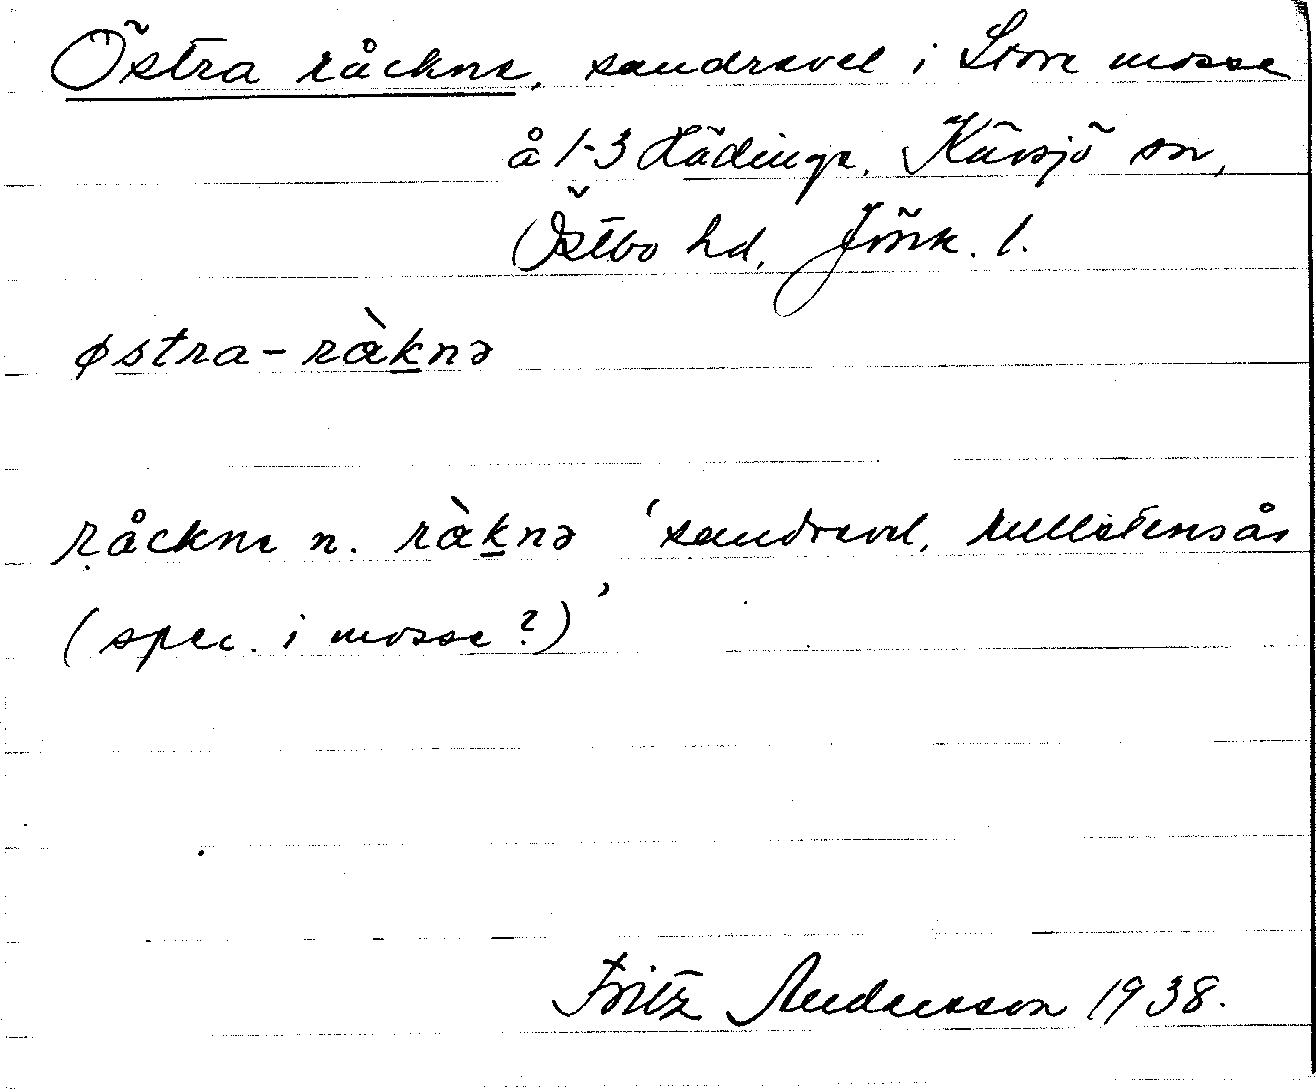 Östra råckne, sandrevel i Store mosse
å 1-3 Hädinge, Kävsjö sn,
Östbo hd, Jönk. l.
østra-ràknə
råckne n. ràknə 'sandrevel, rullstensås
(spec. i mosse?)'
Fritz Andersson 1938.